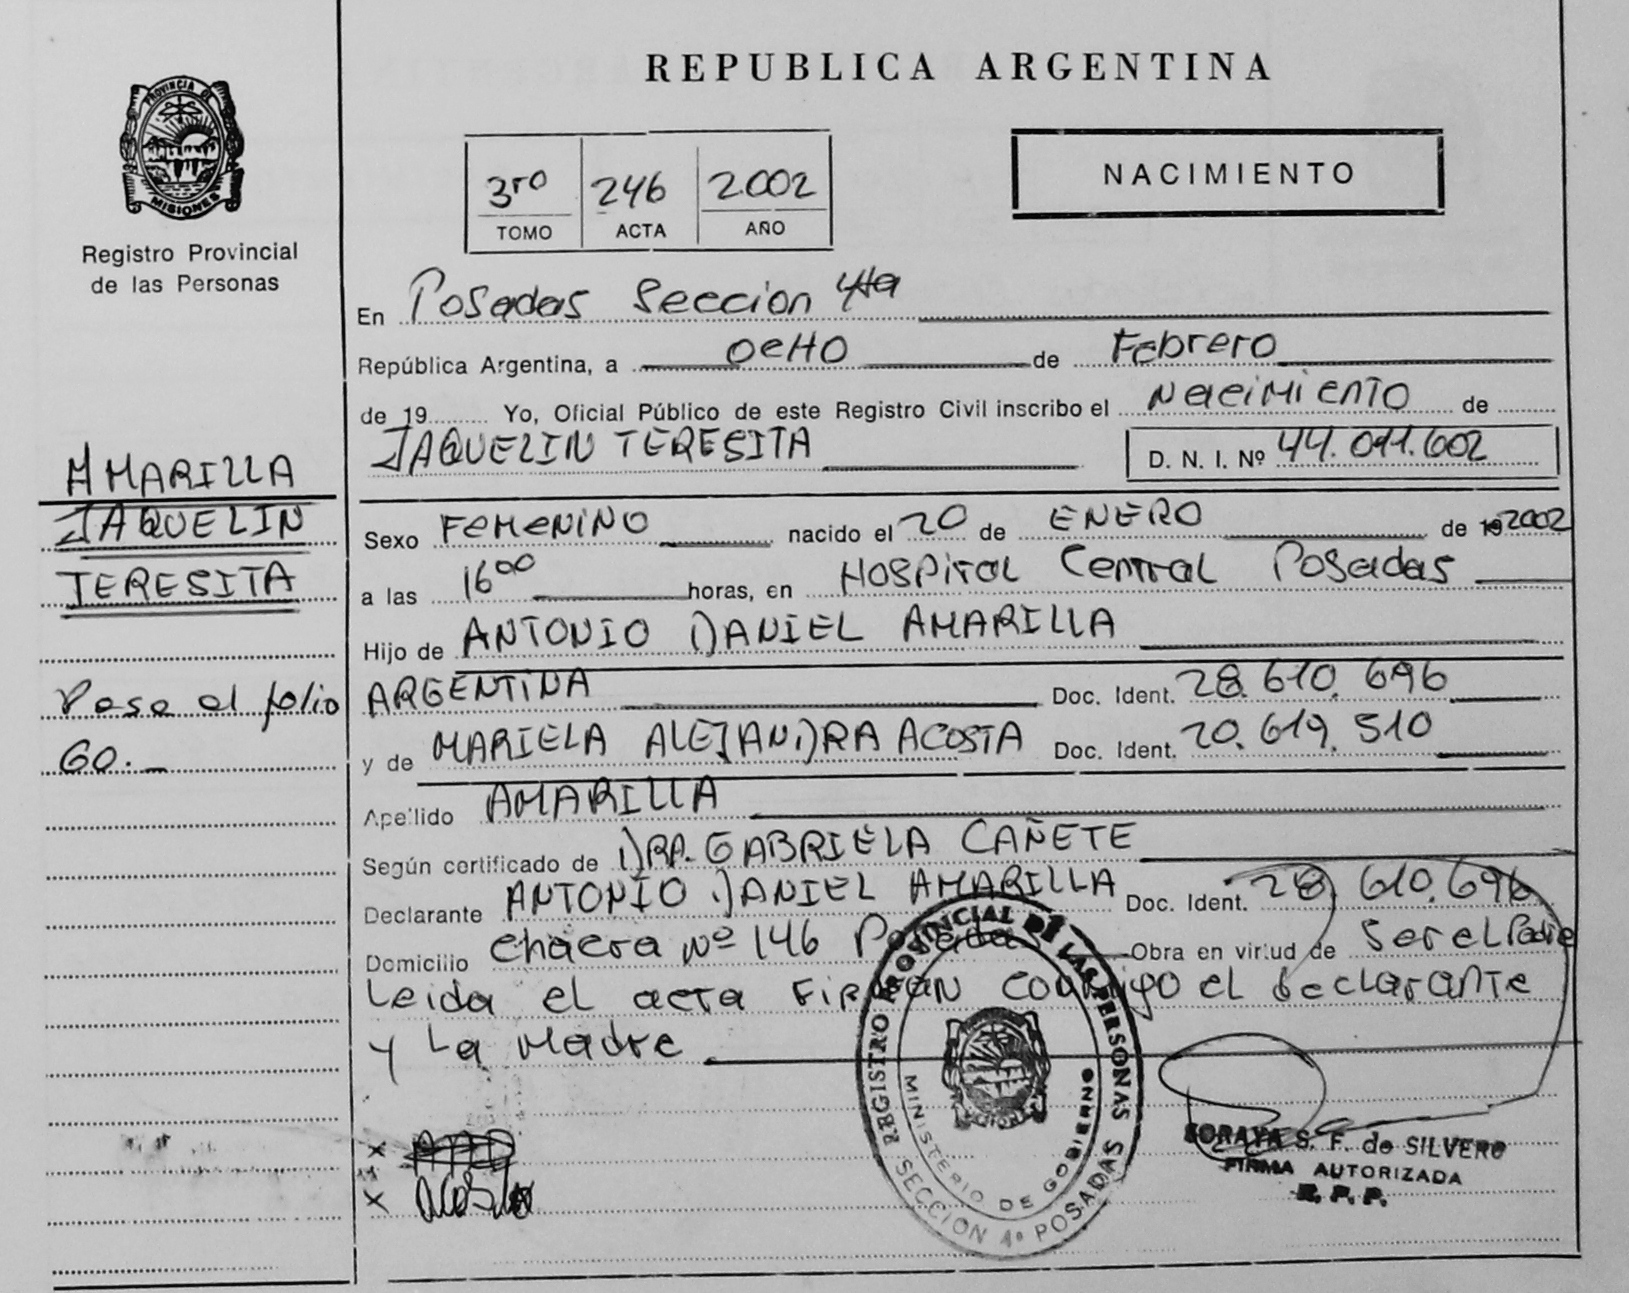 REPUBLICA ARGENTINA
PROVINCIA DE
MISIONES
Registro Provincial
de las Personas
3ro 246 2002
TOMO ACTA AÑO
NACIMIENTO
En Posadas Seccion 4ta
República Argentina, a ocHo de Febrero
de 19 Yo, Oficial Público de este Registro Civil inscribo el Nacimiento de
JAQUELIN TERESITA D. N. I. Nº 44.011.602
AMARILLA
JAQUELIN
TERESITA
Sexo FemeNiNo nacido el 20 de ENERO de 19 2002
a las 16 00 horas, en HOSPital Central Posadas
Hijo de ANTONIO DANIEL AMARILLA
Pasa al folio
60.-
ARGENTINA Doc. Ident. 28.610.696
y de MARIELA ALEJANDRA ACOSTA Doc. Ident. 20.619.510
Apellido AMARILLA
Según certificado de DRA. GABRIELA CAÑETE
Declarante ANTONIO DANIEL AMARILLA Doc. Ident. 28.610.696
Domicilio chacra Nº 146 Posadas Obra en virtud de Ser el Padre
Leida el acta FirmAN conmigo el declarante
y La Madre
REGISTRO PROVINCIAL DE LAS PERSONAS
MINISTERIO DE GOBIERNO
SECCION 4ª POSADAS
SORAYA S. F. de SILVERO
FIRMA AUTORIZADA
R. P. P.
X
X Acosta